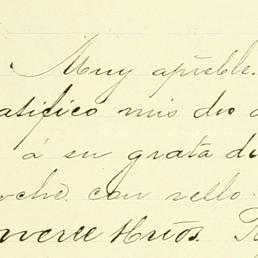 Muy apreble.
atifico mis dos
á su grata de
oche con sello.
Hnos.